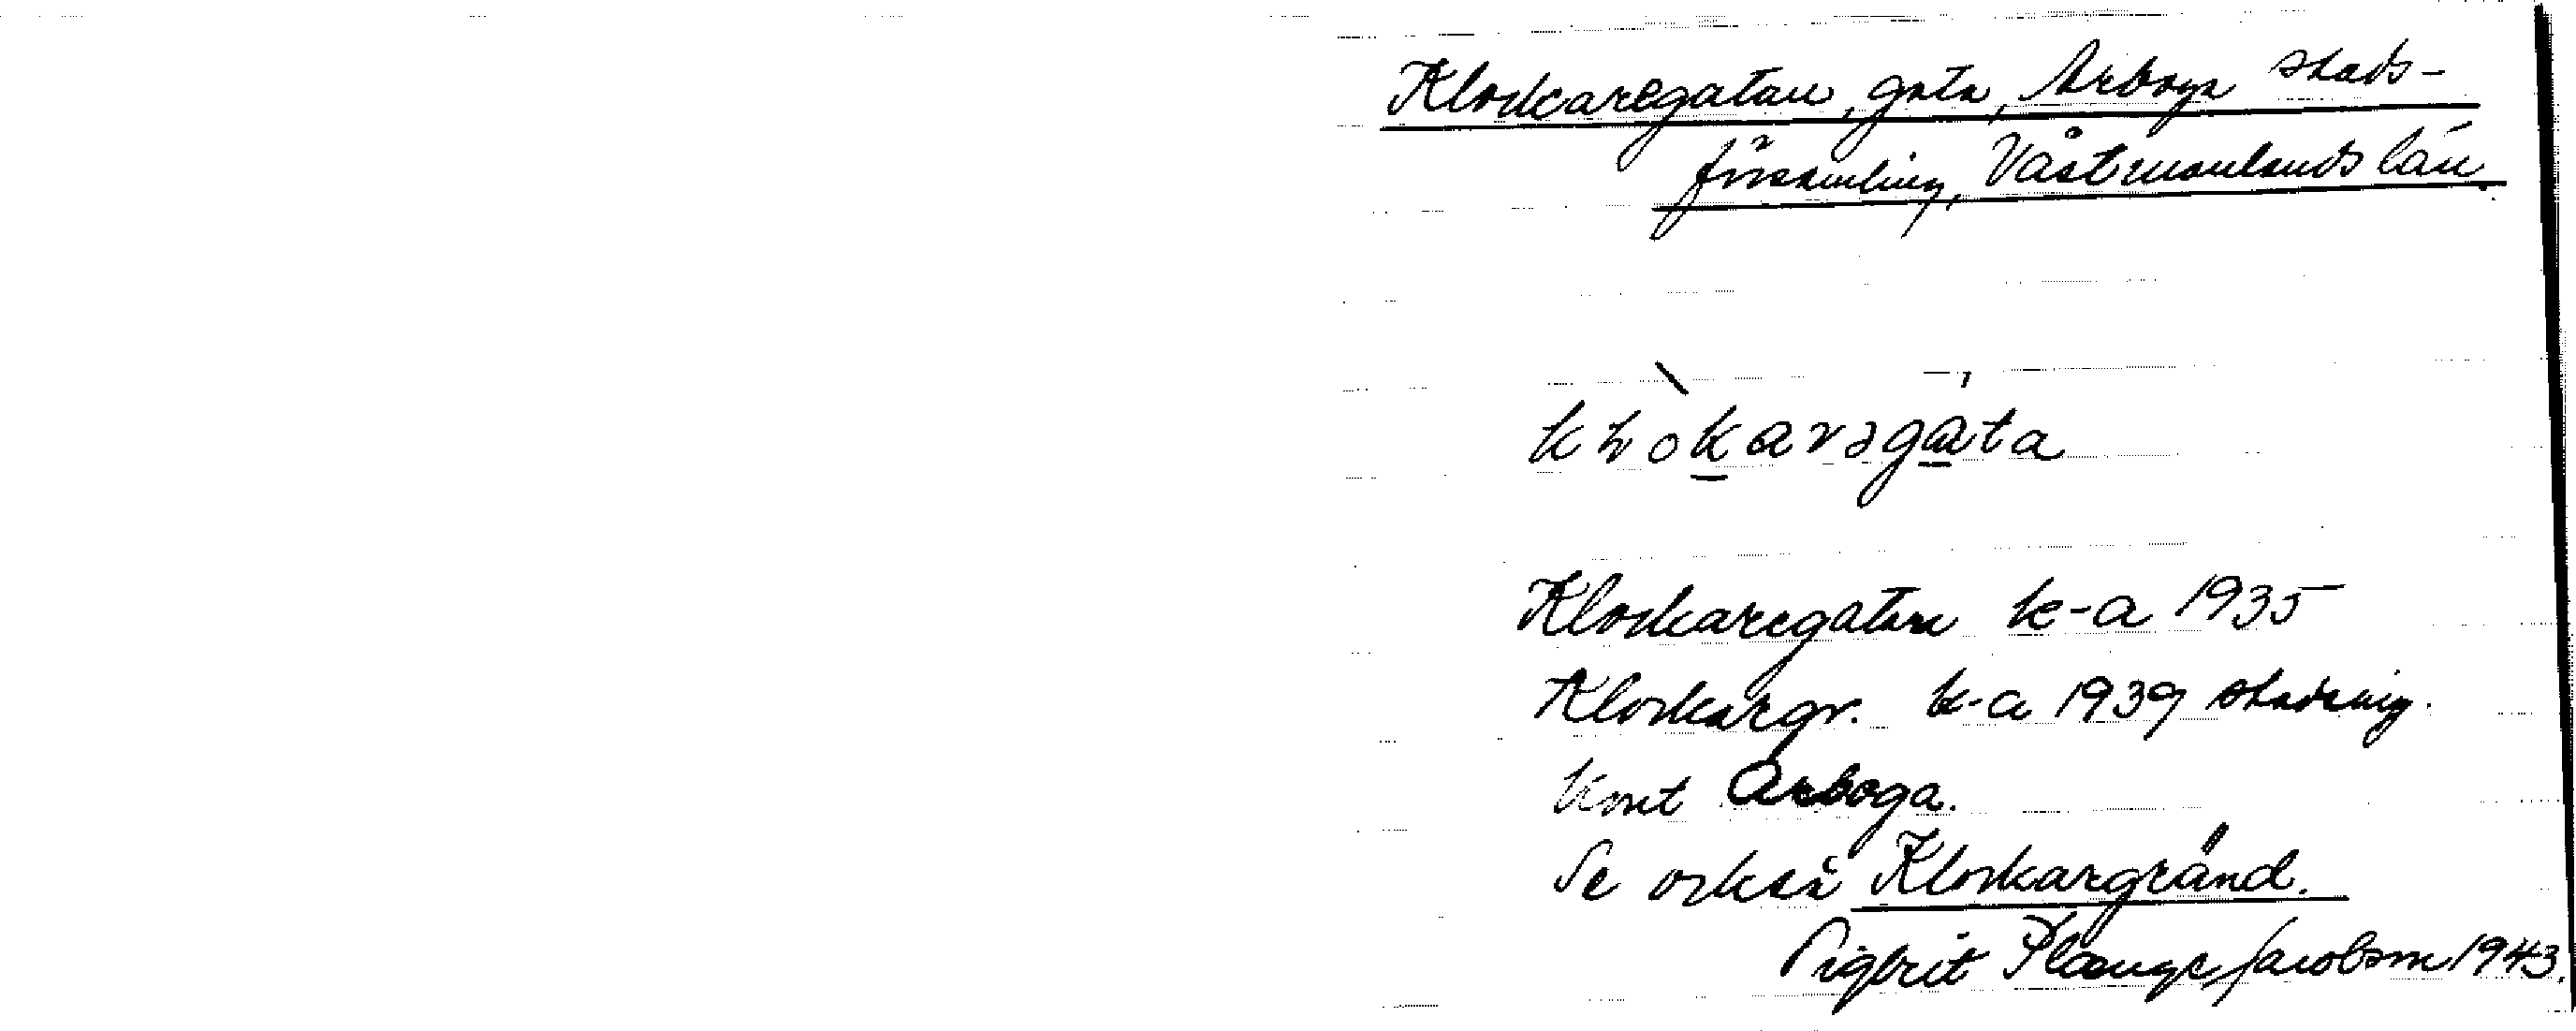 Klockaregatan, gata, Arboga stads-
församling, Västmanlands län.
kɩokarəgata
Klockaregatan k-a 1935
Klockargr. k-a 1939 stadsing.
Känt Arboga.
Se också Klockargränd.
Sigbrit Plænge Jacobson 1943.